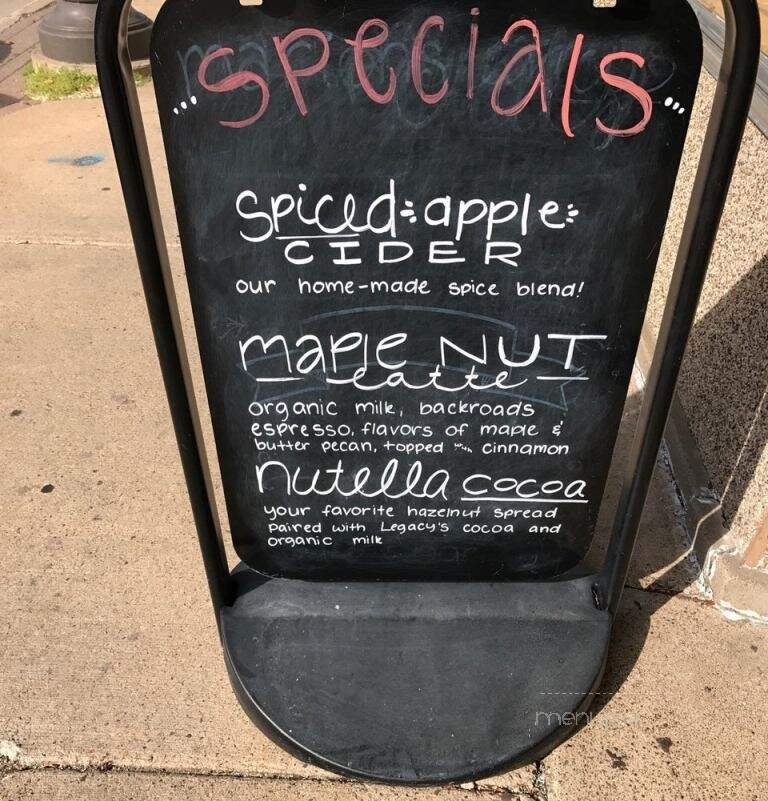 ...specials...
spiced apple
CIDER
our home-made spice blend!
maple NUT
latte
organic milk, backroads
espresso, flavors of maple &
butter pecan, topped with cinnamon
nutella cocoa
your favorite hazelnut spread
paired with Legacy's cocoa and
organic milk